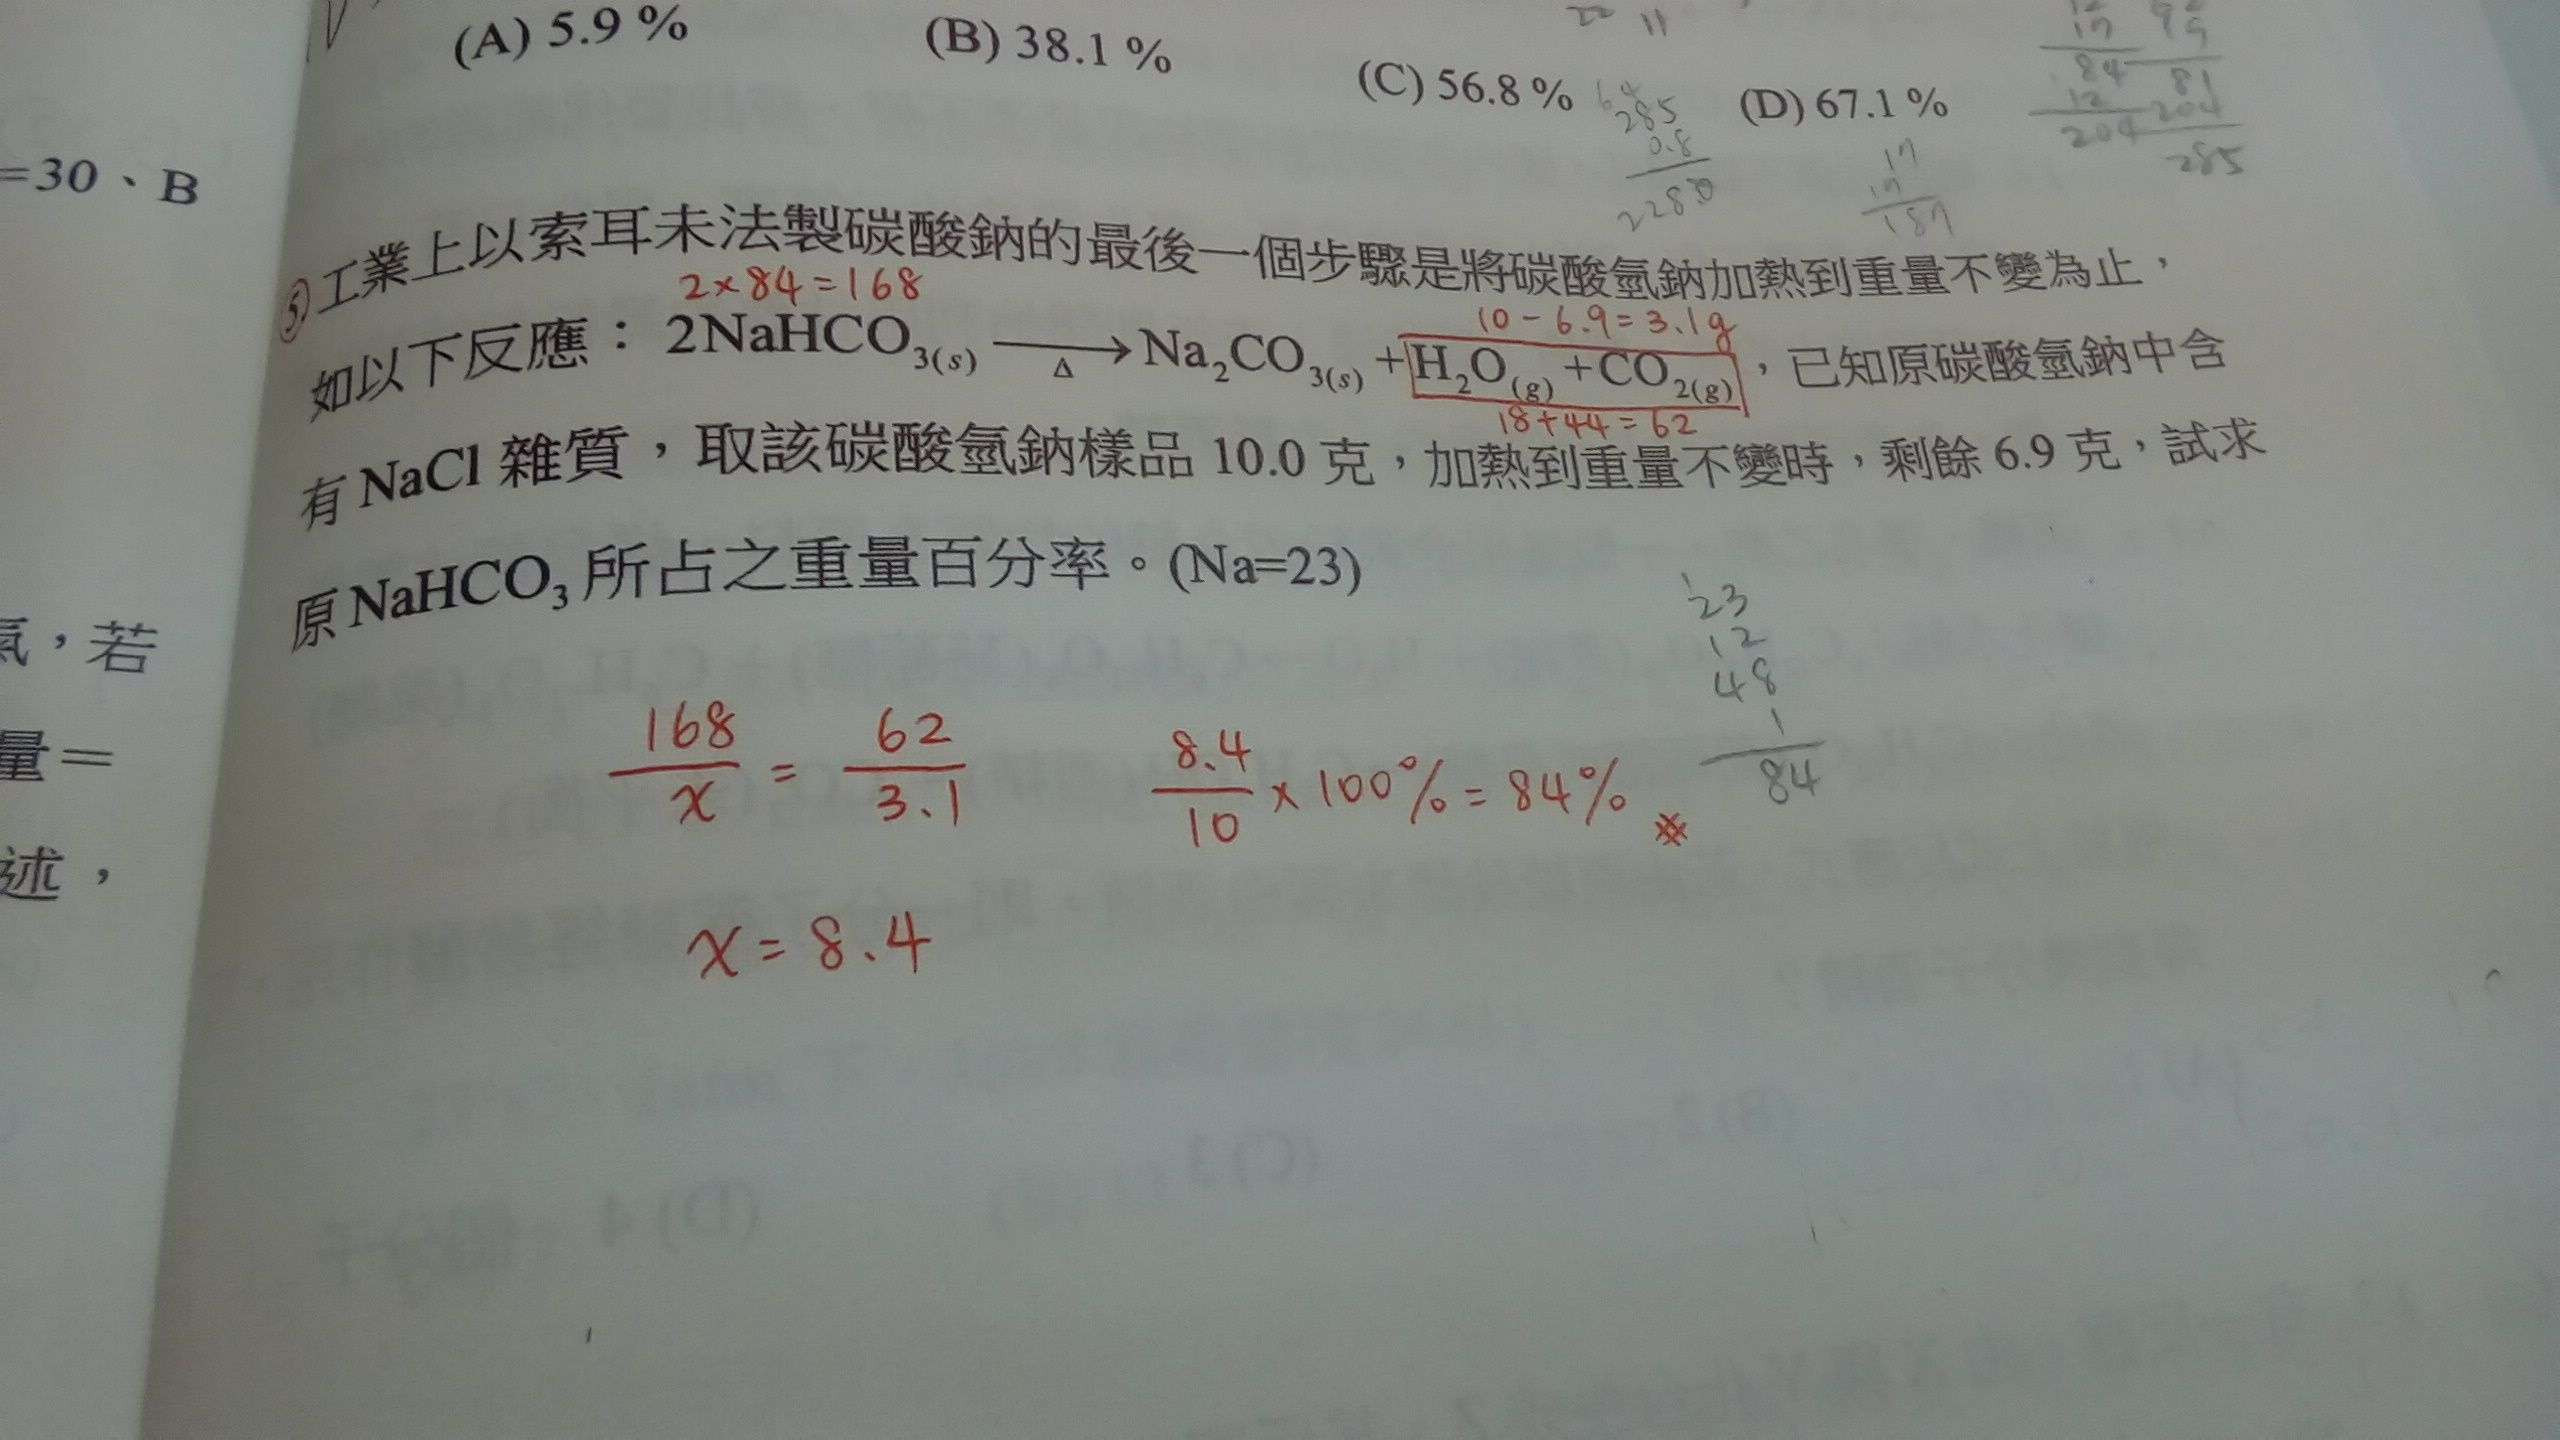 (A) 5.9 %
(B) 38.1 %
(C) 56.8 %
(D) 67.1 %
22 11
285
0.8
2280
17
187
84 81
12 204
204
285
=30、B
⑤工業上以索耳未法製碳酸鈉的最後一個步驟是將碳酸氫鈉加熱到重量不變為止，
2×84=168
10-6.9=3.1g
如以下反應：2NaHCO₃(s) ⟶ Na₂CO₃(s) + H₂O(g) + CO₂(g)，已知原碳酸氫鈉中含
Δ
18+44=62
有 NaCl 雜質，取該碳酸氫鈉樣品 10.0 克，加熱到重量不變時，剩餘 6.9 克，試求
原 NaHCO₃ 所占之重量百分率。(Na=23)
氣，若
量＝
述，
168/x = 62/3.1
8.4/10 × 100% = 84%
x = 8.4
23
12
48
1
84